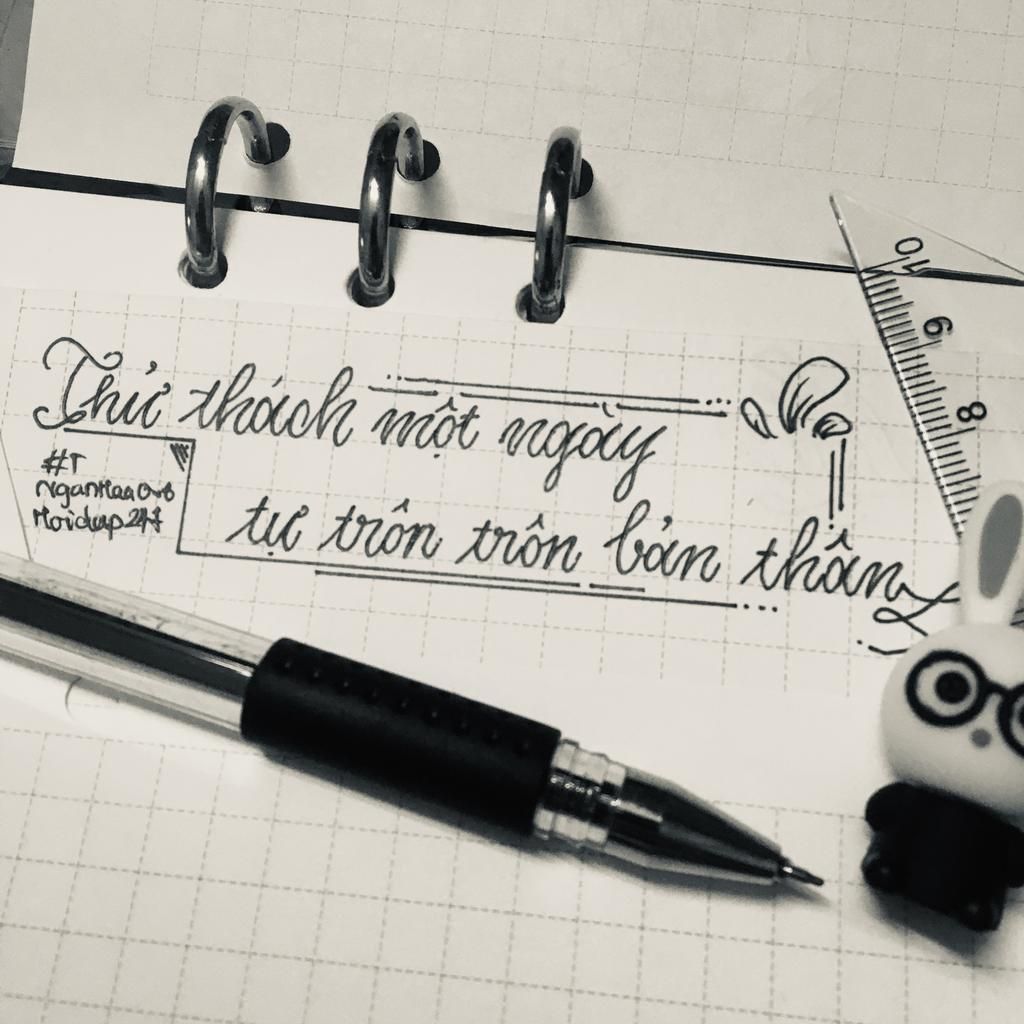 Thử thách một ngày
tự trôn trôn bản thân
#T
NganHaaOvO
Hoidap247
10
9
8